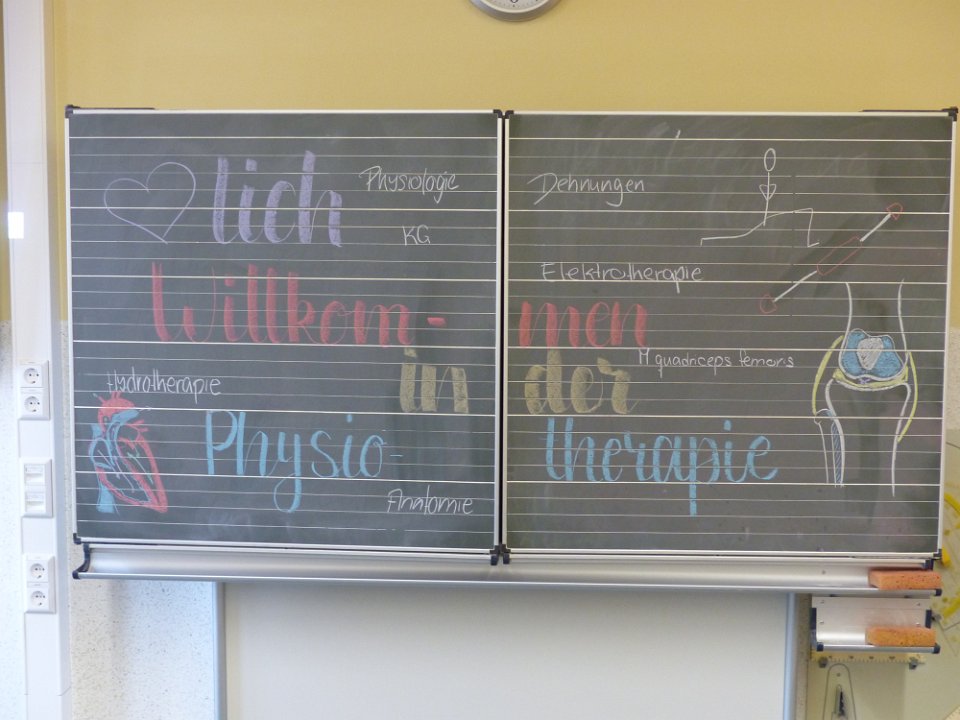 lich
Physiologie
KG
Willkom-
Hydrotherapie
in
Physio-
Anatomie
Dehnungen
Elektrotherapie
men
M quadriceps femoris
der
therapie